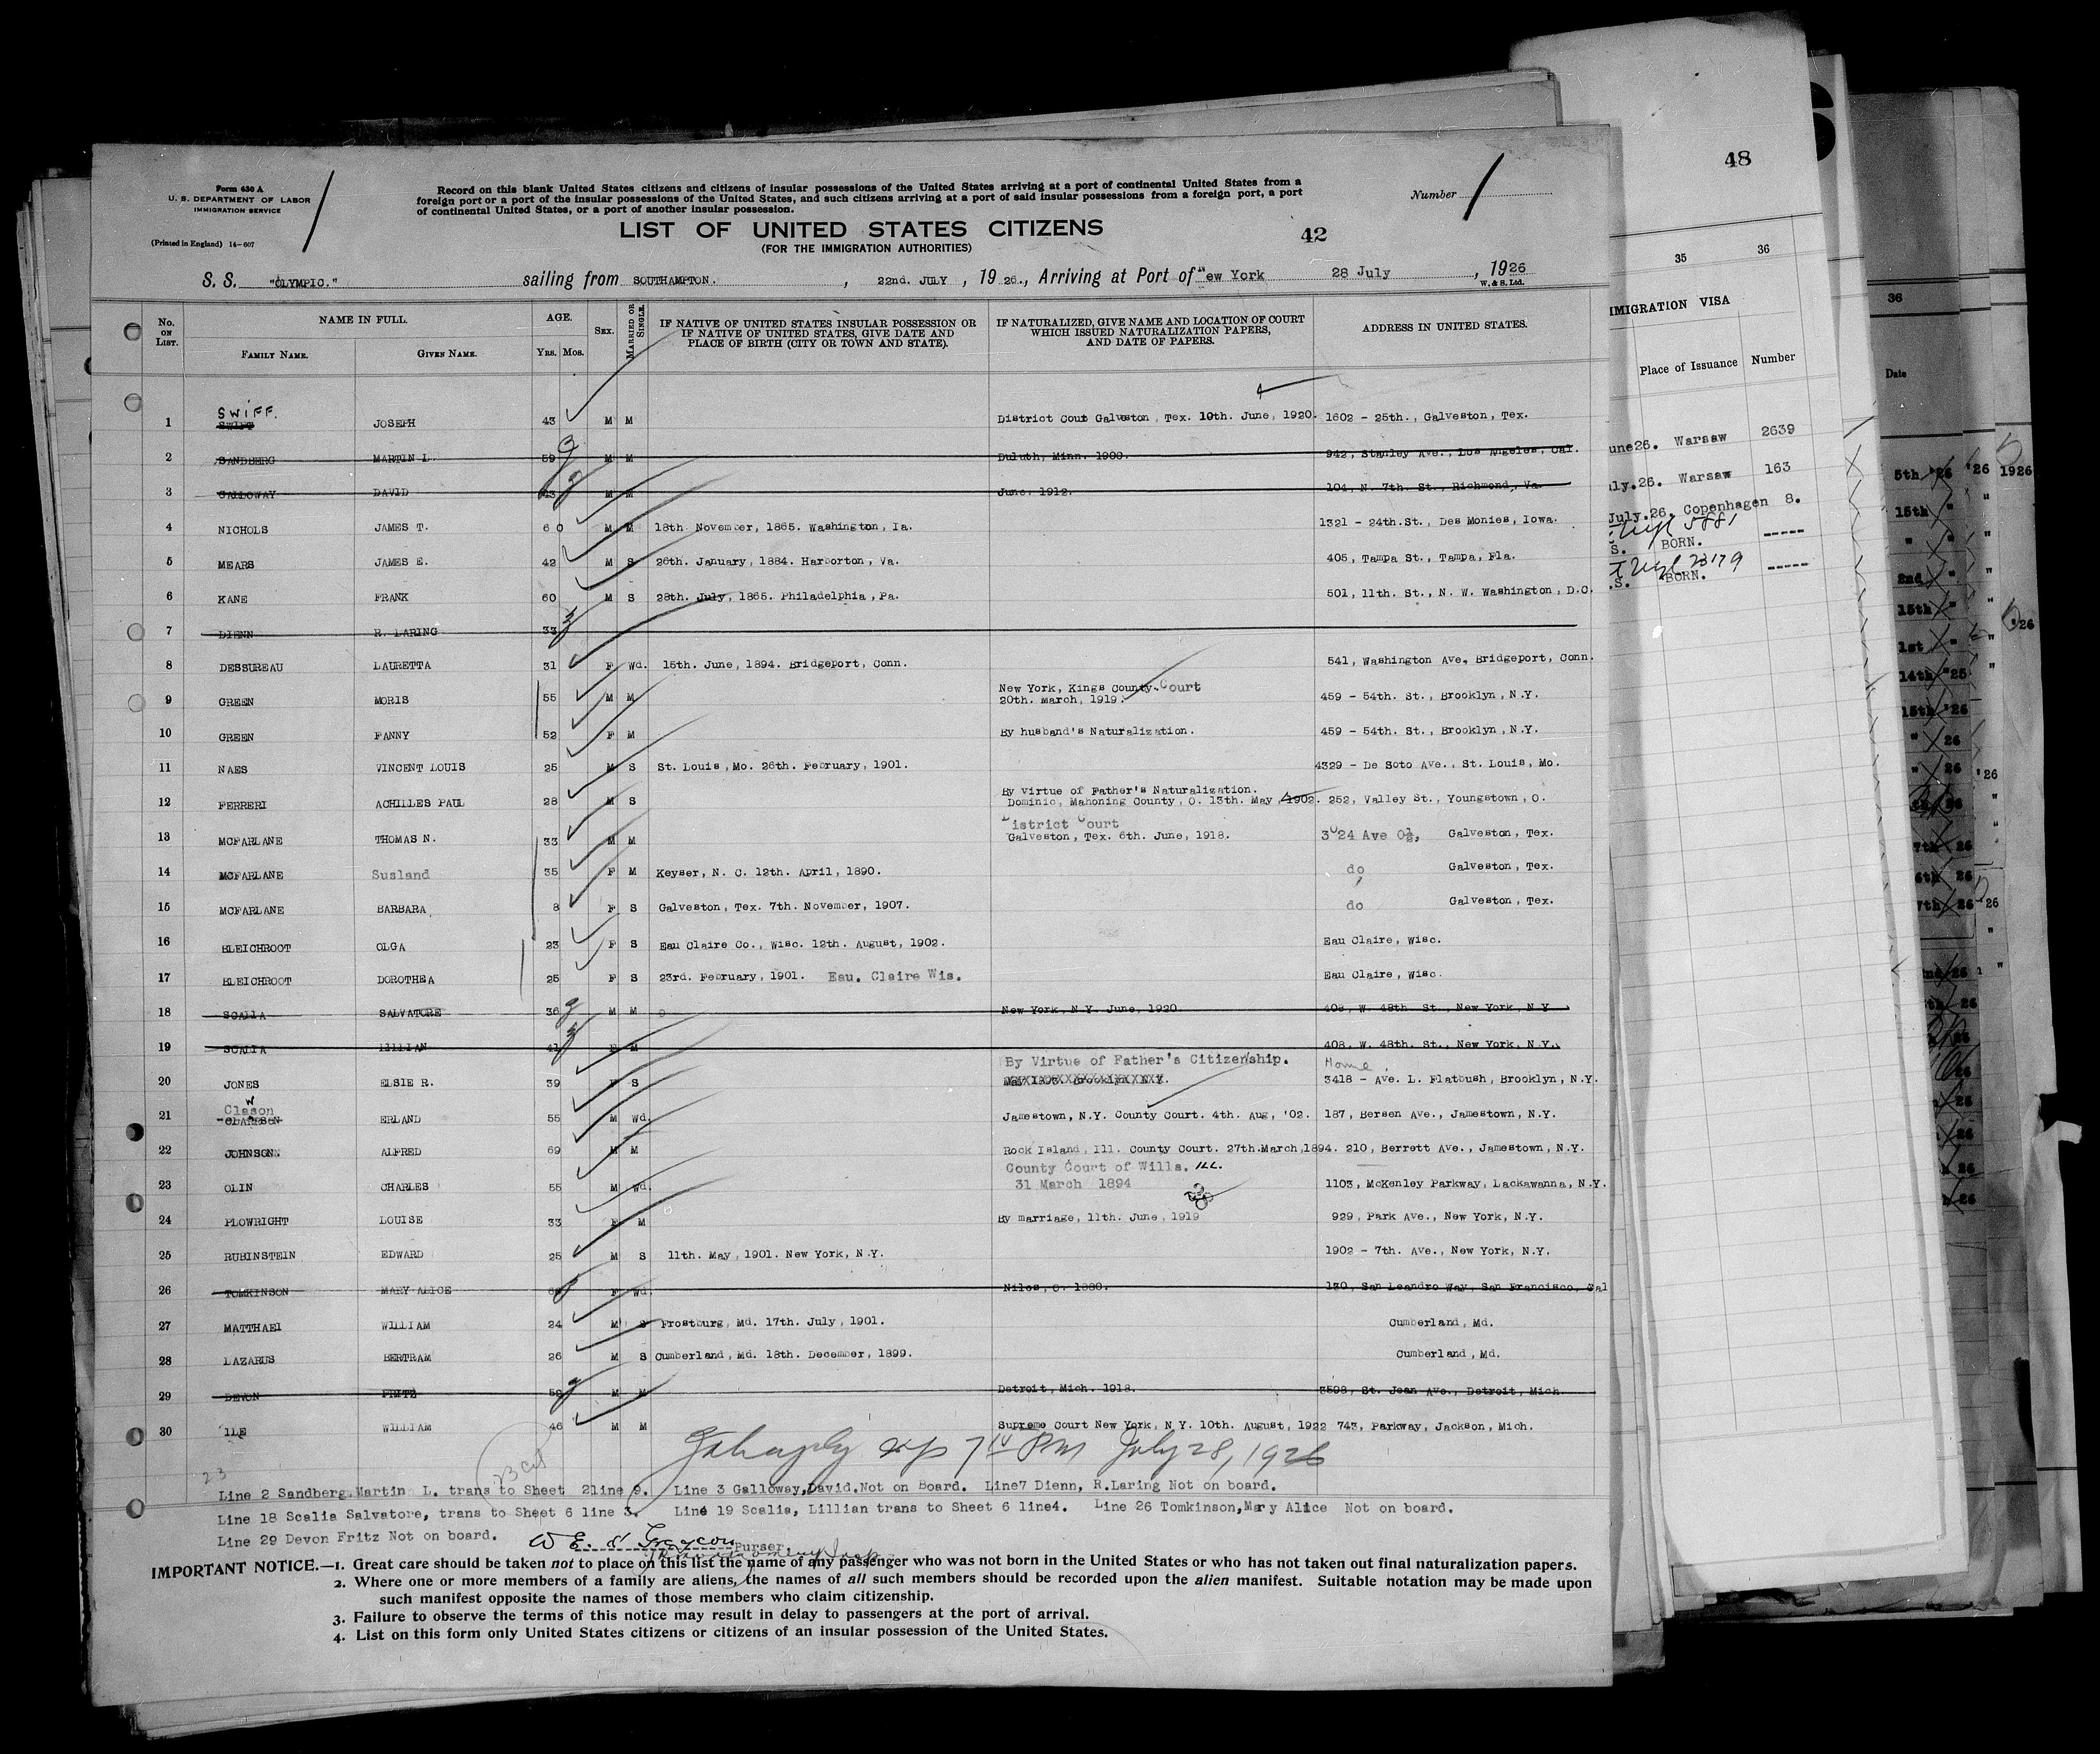 Form 630 A
U. S. DEPARTMENT OF LABOR
IMMIGRATION SERVICE
(Printed in England) 14-607
Record on this blank United States citizens and citizens of insular possessions of the United States arriving at a port of continental United States from a
foreign port or a port of the insular possessions of the United States, and such citizens arriving at a port of said insular possessions from a foreign port, a port
of continental United States, or a port of another insular possession.
Number 1
LIST OF UNITED STATES CITIZENS
(FOR THE IMMIGRATION AUTHORITIES)
42
S. S. "OLYMPIC." sailing from SOUTHAMPTON. , 22nd. JULY , 1926., Arriving at Port of New York 28 July , 1926
W. & S. Ltd.
No. ON LIST. NAME IN FULL. FAMILY NAME. GIVEN NAME. AGE. YRS. MOS. SEX. MARRIED OR SINGLE.
IF NATIVE OF UNITED STATES INSULAR POSSESSION OR IF NATIVE OF UNITED STATES, GIVE DATE AND PLACE OF BIRTH (CITY OR TOWN AND STATE).
IF NATURALIZED, GIVE NAME AND LOCATION OF COURT WHICH ISSUED NATURALIZATION PAPERS, AND DATE OF PAPERS.
ADDRESS IN UNITED STATES.
SWIFF.
1 SWIFT JOSEPH 43 M M District Cout Galveston, Tex. 10th. June, 1920. 1602 - 25th., Galveston, Tex.
2 SANDBERG MARTIN L. 59 M M Duluth, Minn. 1900. 942, Stanley Ave., Los Angeles, Cal.
3 GALLOWAY DAVID 43 M M June 1912. 104, N. 7th St., Richmond, Va.
4 NICHOLS JAMES T. 60 M M 18th November, 1865. Washington, Ia. 1321 - 24th.St., Des Monies, Iowa.
5 MEARS JAMES E. 42 M S 26th. January, 1884. Harborton, Va. 405, Tampa St., Tampa, Fla.
6 KANE FRANK 60 M S 28th. July, 1865. Philadelphia, Pa. 501, 11th. St., N. W. Washington, D.C.
7 DIENN R. LARING 33
8 DESSUREAU LAURETTA 31 F Wd. 15th. June, 1894. Bridgeport, Conn. 541, Washington Ave. Bridgeport, Conn.
9 GREEN MORIS 55 M M New York, Kings County Court 20th. March, 1919. 459 - 54th. St., Brooklyn, N.Y.
10 GREEN FANNY 52 F M By husband's Naturalization. 459 - 54th. St., Brooklyn, N.Y.
11 NAES VINCENT LOUIS 25 M S St. Louis, Mo. 26th. February, 1901. 4329 - De Soto Ave., St. Louis, Mo.
12 FERRERI ACHILLES PAUL 28 M S By virtue of Father's Naturalization. Dominic, Mahoning County, O. 13th. May, 1902. 252, Valley St., Youngstown, O.
13 MCFARLANE THOMAS N. 33 M M District Court Galveston, Tex. 6th. June, 1918. 3024 Ave O½, Galveston, Tex.
14 MCFARLANE Susland 35 F M Keyser, N. C. 12th. April, 1890. do Galveston, Tex.
15 MCFARLANE BARBARA 8 F S Galveston, Tex. 7th. November, 1907. do Galveston, Tex.
16 BLEICHROOT OLGA 23 F S Eau Claire Co., Wisc. 12th. August, 1902. Eau Claire, Wisc.
17 BLEICHROOT DOROTHEA 25 F S 23rd. February, 1901. Eau. Claire Wis. Eau Claire, Wisc.
18 SCALIA SALVATORE 36 M M New York, N.Y. June, 1920. 408, W. 48th St., New York, N.Y
19 SCALIA LILLIAN 41 F M 408, W. 48th. St., New York, N.Y.
By Virtue of Father's Citizenship. Home
20 JONES ELSIE R. 39 F S 3418 - Ave. L. Flatbush, Brooklyn, N.Y.
Clason
21 CLAWSON ERLAND 55 M Wd Jamestown, N.Y. County Court. 4th. Aug, '02. 187, Bersen Ave., Jamestown, N.Y.
22 JOHNSON ALFRED 69 M M Rock Island, Ill. County Court. 27th.March,1894. 210, Berrett Ave., Jamestown, N.Y.
23 OLIN CHARLES 55 M Wd. County Court of Wills. ILL. 31 March 1894 1103, McKenley Parkway, Lackawanna, N.Y.
24 PLOWRIGHT LOUISE 33 F M By marriage, 11th. June, 1919 929, Park Ave., New York, N.Y.
25 RUBINSTEIN EDWARD 25 M S 11th. May, 1901. New York, N.Y. 1902 - 7th. Ave., New York, N.Y.
26 TOMKINSON MARY ALICE F Wd. Niles, O. 1880. 130, San Leandro Way, San Francisco, Cal
27 MATTHAEI WILLIAM 24 M S Frostburg, Md. 17th. July, 1901. Cumberland, Md.
28 LAZARUS BERTRAM 26 M S Cumberland, Md. 18th. December, 1899. Cumberland, Md.
29 DEVON FRITZ 59 M M Detroit, Mich. 1918. 3598, St. Jean Ave., Detroit, Mich
30 ILE WILLIAM 46 M M Supreme Court New York, N Y. 10th. August, 1922 743, Parkway, Jackson, Mich.
PM July 28, 1926
23
Line 2 Sandberg Martin L. trans to Sheet 2line 9. Line 3 Galloway,David.Not on Board. Line7 Dienn, R.Laring Not on board.
Line 18 Scalia Salvatore, trans to Sheet 6 line 3. Line 19 Scalia, Lillian trans to Sheet 6 line4. Line 26 Tomkinson,Mary Alice Not on board.
Line 29 Devon Fritz Not on board.
Purser.
IMPORTANT NOTICE.—1. Great care should be taken not to place on this list the name of any passenger who was not born in the United States or who has not taken out final naturalization papers.
2. Where one or more members of a family are aliens, the names of all such members should be recorded upon the alien manifest. Suitable notation may be made upon
such manifest opposite the names of those members who claim citizenship.
3. Failure to observe the terms of this notice may result in delay to passengers at the port of arrival.
4. List on this form only United States citizens or citizens of an insular possession of the United States.
48
35 36
IMMIGRATION VISA
Place of Issuance Number
une26. Warsaw 2639
ly.26. Warsaw 163
July.26. Copenhagen 8.
5881
S. BORN. -----
23179
.S. BORN. -----
36
Date
5th '26 '26 1926
15th "
2nd "
15th "
1st "
14th "25
15th '26